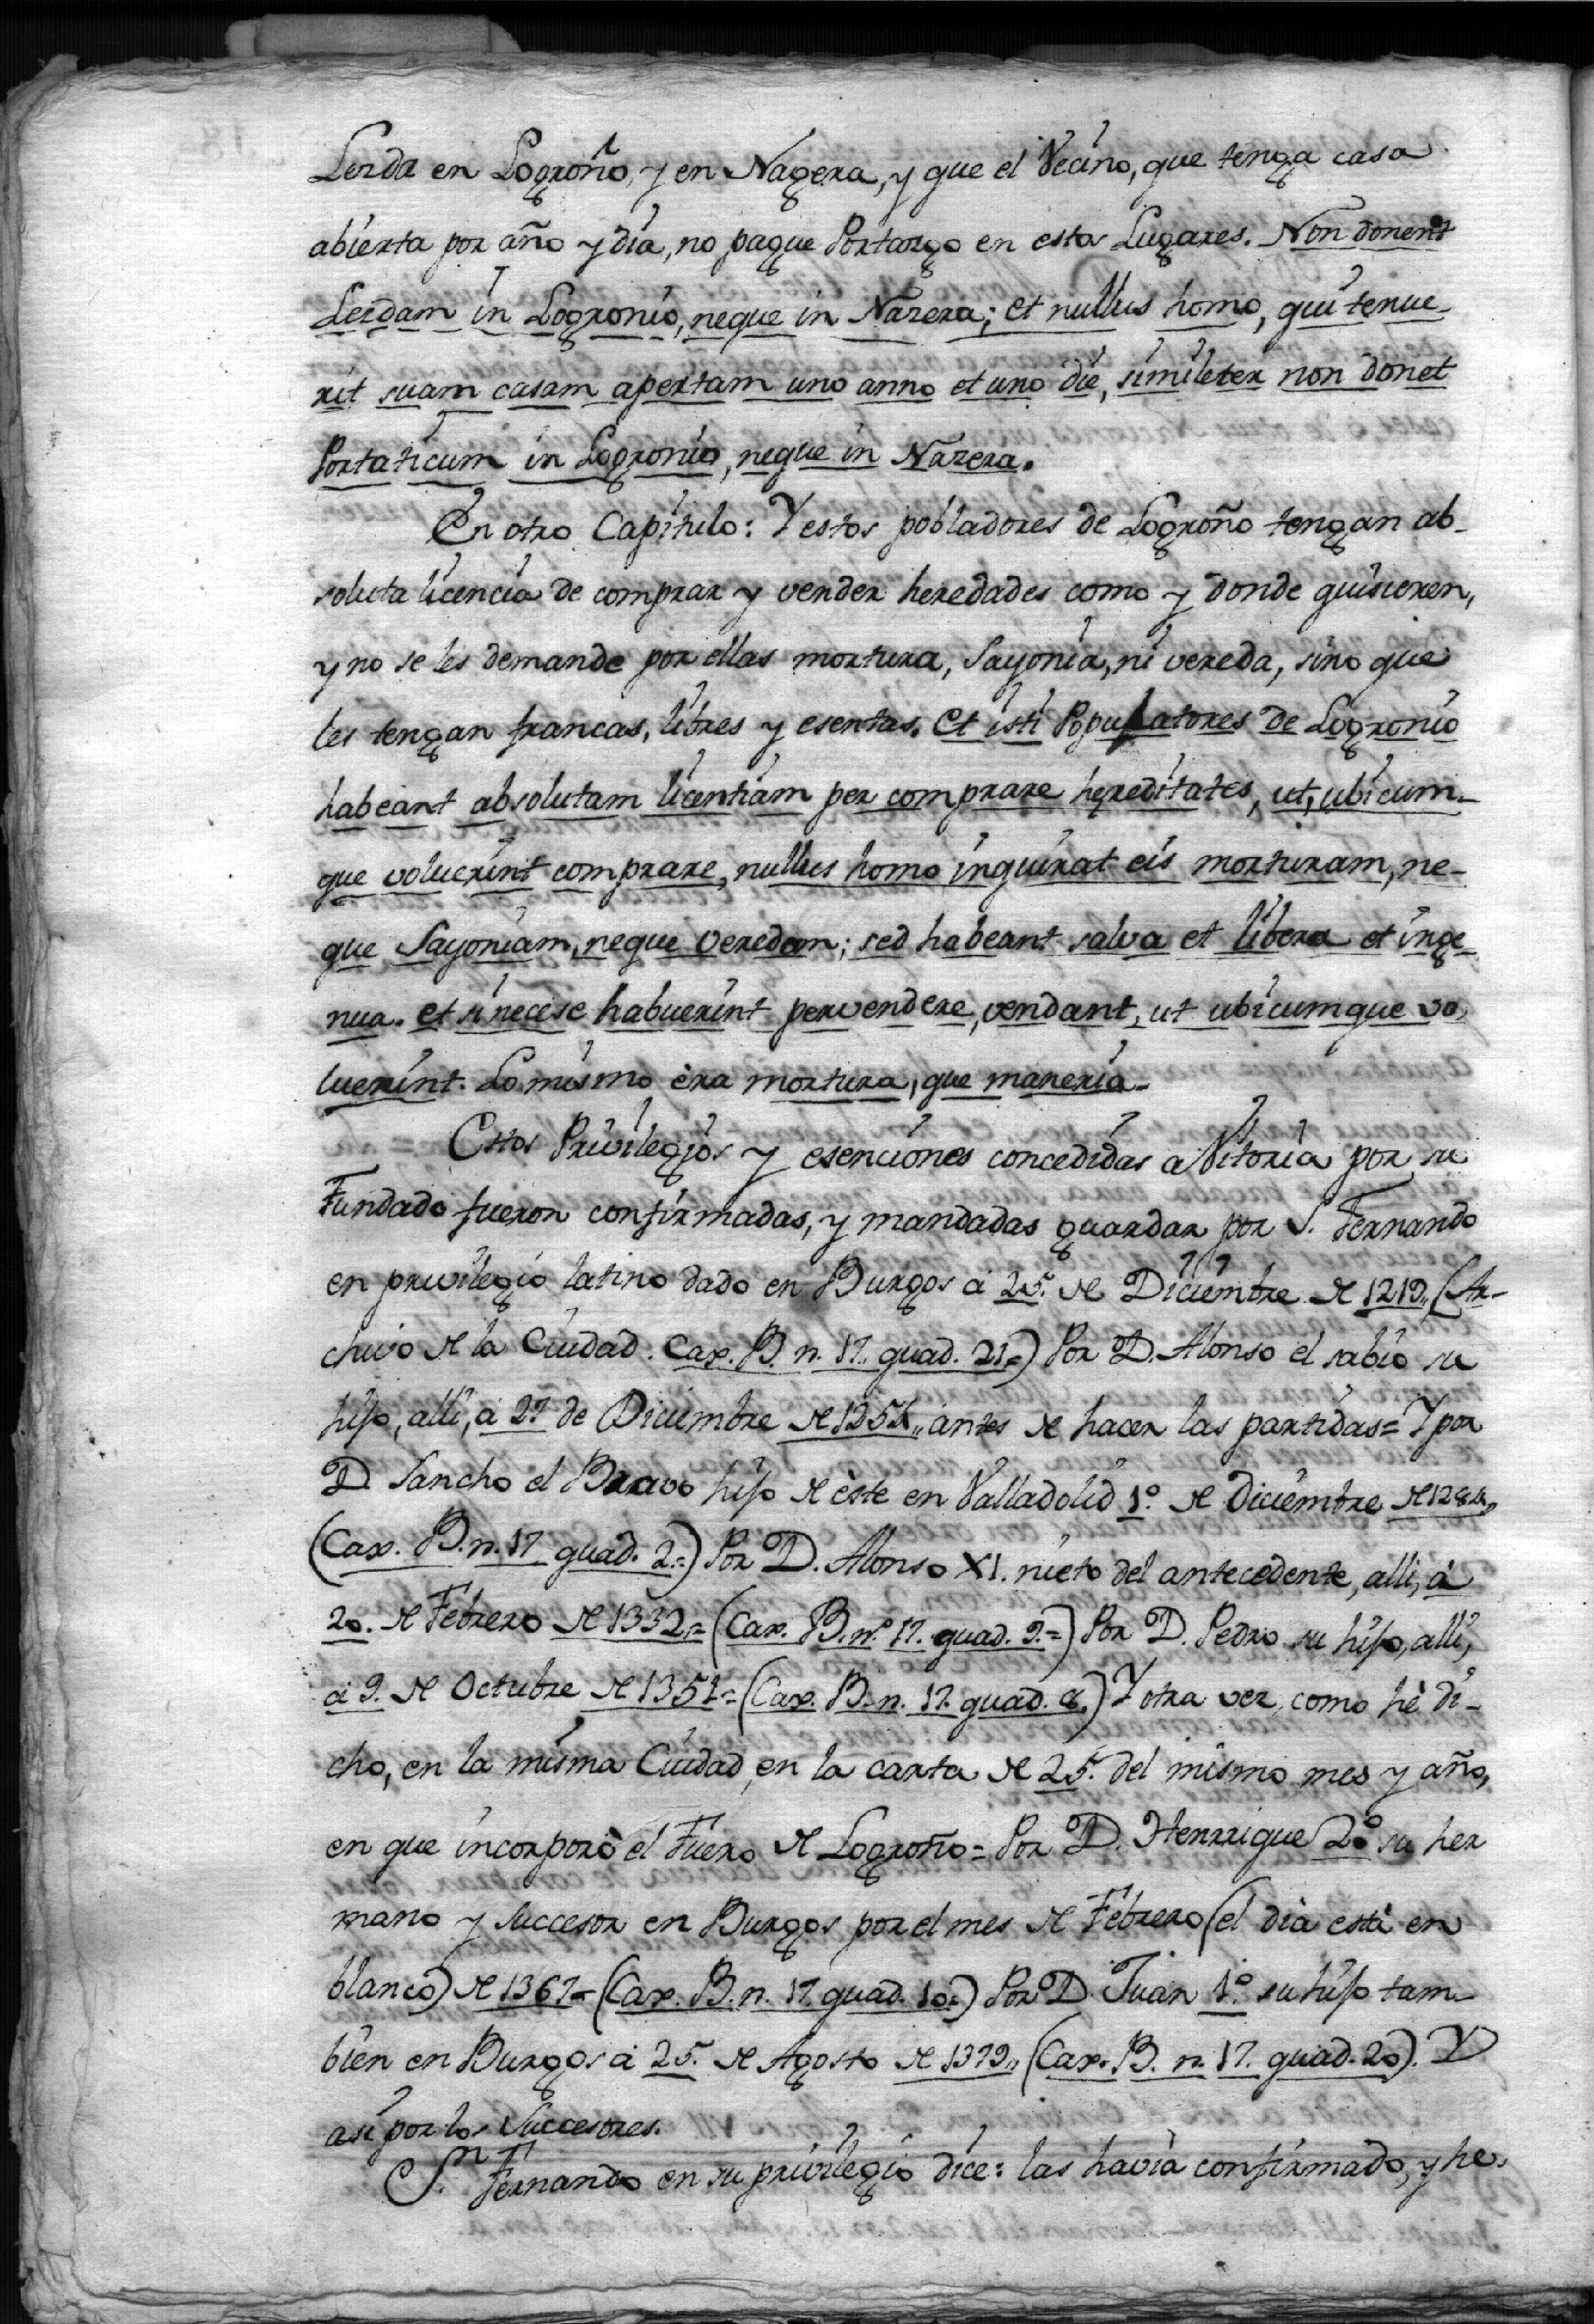 Lezda en Logroño, y en Nagera, y que el Vecino, que tenga casa
abierta por año y dia, no pague Portazgo en estos Lugares. Non donent
Lezdam in Logronio, neque in Nazera; et nullus homo, qui tenue-
rit suam casam apertam uno anno et uno die, similiter non donet
Portaticum in Logronio, neque in Nazera.
En otro Capitulo: Y estos pobladores de Logroño tengan ab-
soluta licencia de comprar y vender heredades como y donde quisieren,
y no se les demande por ellas mortura, Sayonia, ni vereda, sino que
les tengan francas, libres y esentas. Et isti Populatores de Logronio
habeant absolutam licentiam per comprare hereditates, ut, ubicum-
que voluerint comprare, nullus homo inquirat eis morturam, ne-
que Sayoniam, neque veredam; sed habeant salva et libera et inge-
nua. et si necese habuerint pervendere, vendant, ut ubicumque vo-
luerint. Lo mismo èra mortura, que maneria.
Estos Privilegios y esenciones concedidas a Vitoria por su
Fundado fueron confirmadas, y mandadas guardar por S. Fernando
en privilegio latino dado en Burgos à 25. de Diciembre de 1219,, (Ar-
chivo de la Ciudad. Cax. B. n. 17. quad. 21=) Por D. Alonso el sabio su
hijo, alli, à 27 de Diciembre de 1254,, antes de hacer las partidas= Y por
D. Sancho el Bravo hijo de èste en Valladolid 1º. de Diciembre de 1284,,
(Cax. B. n. 17 quad. 2.=) Por D. Alonso XI. nieto del antecedente, alli, à
20. de Febrero de 1332,= (Cax. B. n.º 17. quad. 9.=) Por D. Pedro su hijo, alli,
à 9. de Octubre de 1351= (Cax. B. n. 17. quad. 8.) Y otra vez, como hè di-
cho, en la misma Ciudad, en la carta de 25. del mismo mes y año,
en que incorporò el Fuero de Logroño= Por D. Henrrique 2º su her
mano y Succesor en Burgos por el mes de Febrero (el dia està en
blanco) de 1367= (Cax. B. n. 17. quad. 10=) Por D. Juan 1º. su hijo tam-
bien en Burgos à 25. de Agosto de 1379,, (Cax. B. n. 17. quad. 20). Y
asi por los Succesores.
S.n Fernando en su privilegio dice: las havia confirmado, y he-